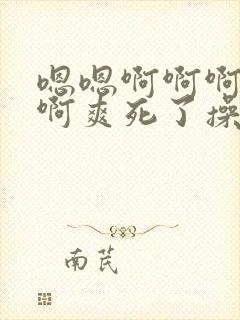 嗯嗯啊啊啊
啊爽死了操
南芪